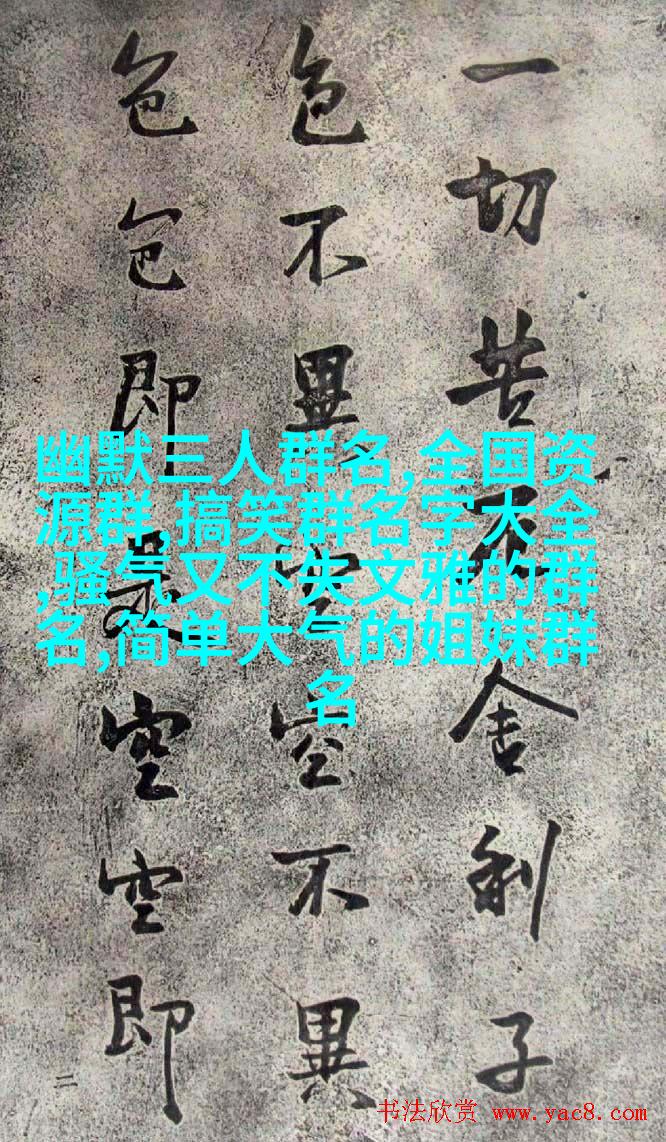 一切苦厄舍利子
色不異空空不異
色色即是空空即
二
幽默三人群名,全国资
源群,搞笑群名字大全
,骚气又不失文雅的群
名,简单大气的姐妹群
名
书法欣赏 www.yac8.com